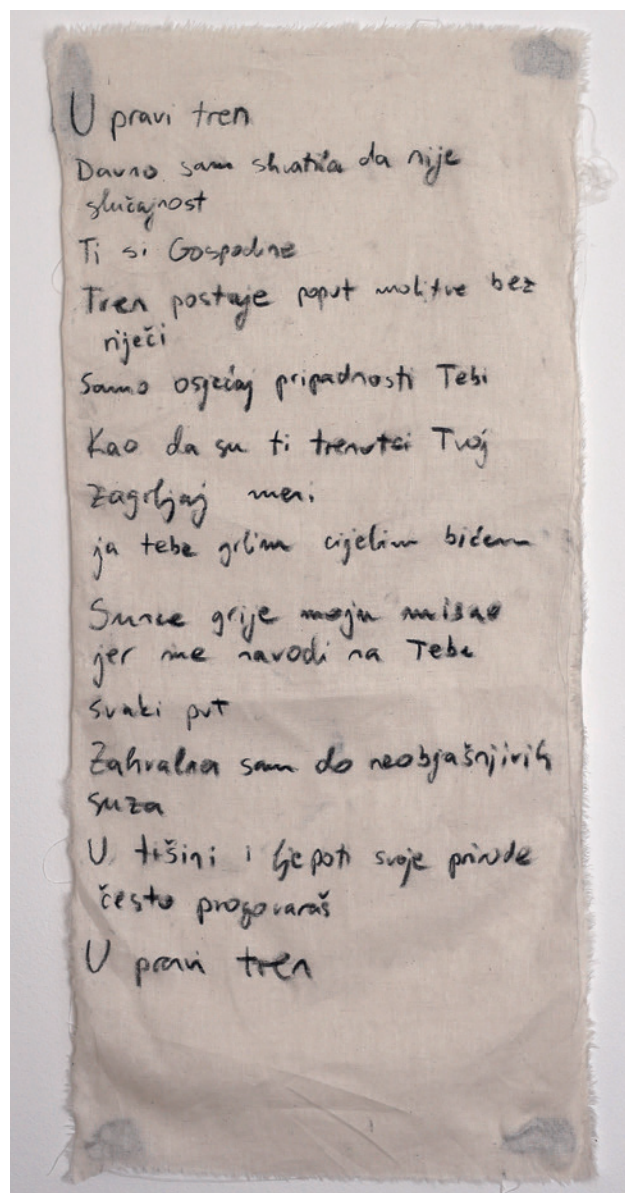 U pravi tren
Davno sam shvatila da nije
slučajnost
Ti si Gospodine
Tren postaje poput molitve bez
riječi
Samo osjećaj pripadnosti Tebi
Kao da su ti trenutci Tvoj
zagrljaj meni
ja tebe grlim cijelim bićem
Sunce grije moju misao
jer me navodi na Tebe
svaki put
Zahvalna sam do neobjašnjivih
suza
U tišini i ljepoti svoje prirode
često progovaraš
U pravi tren